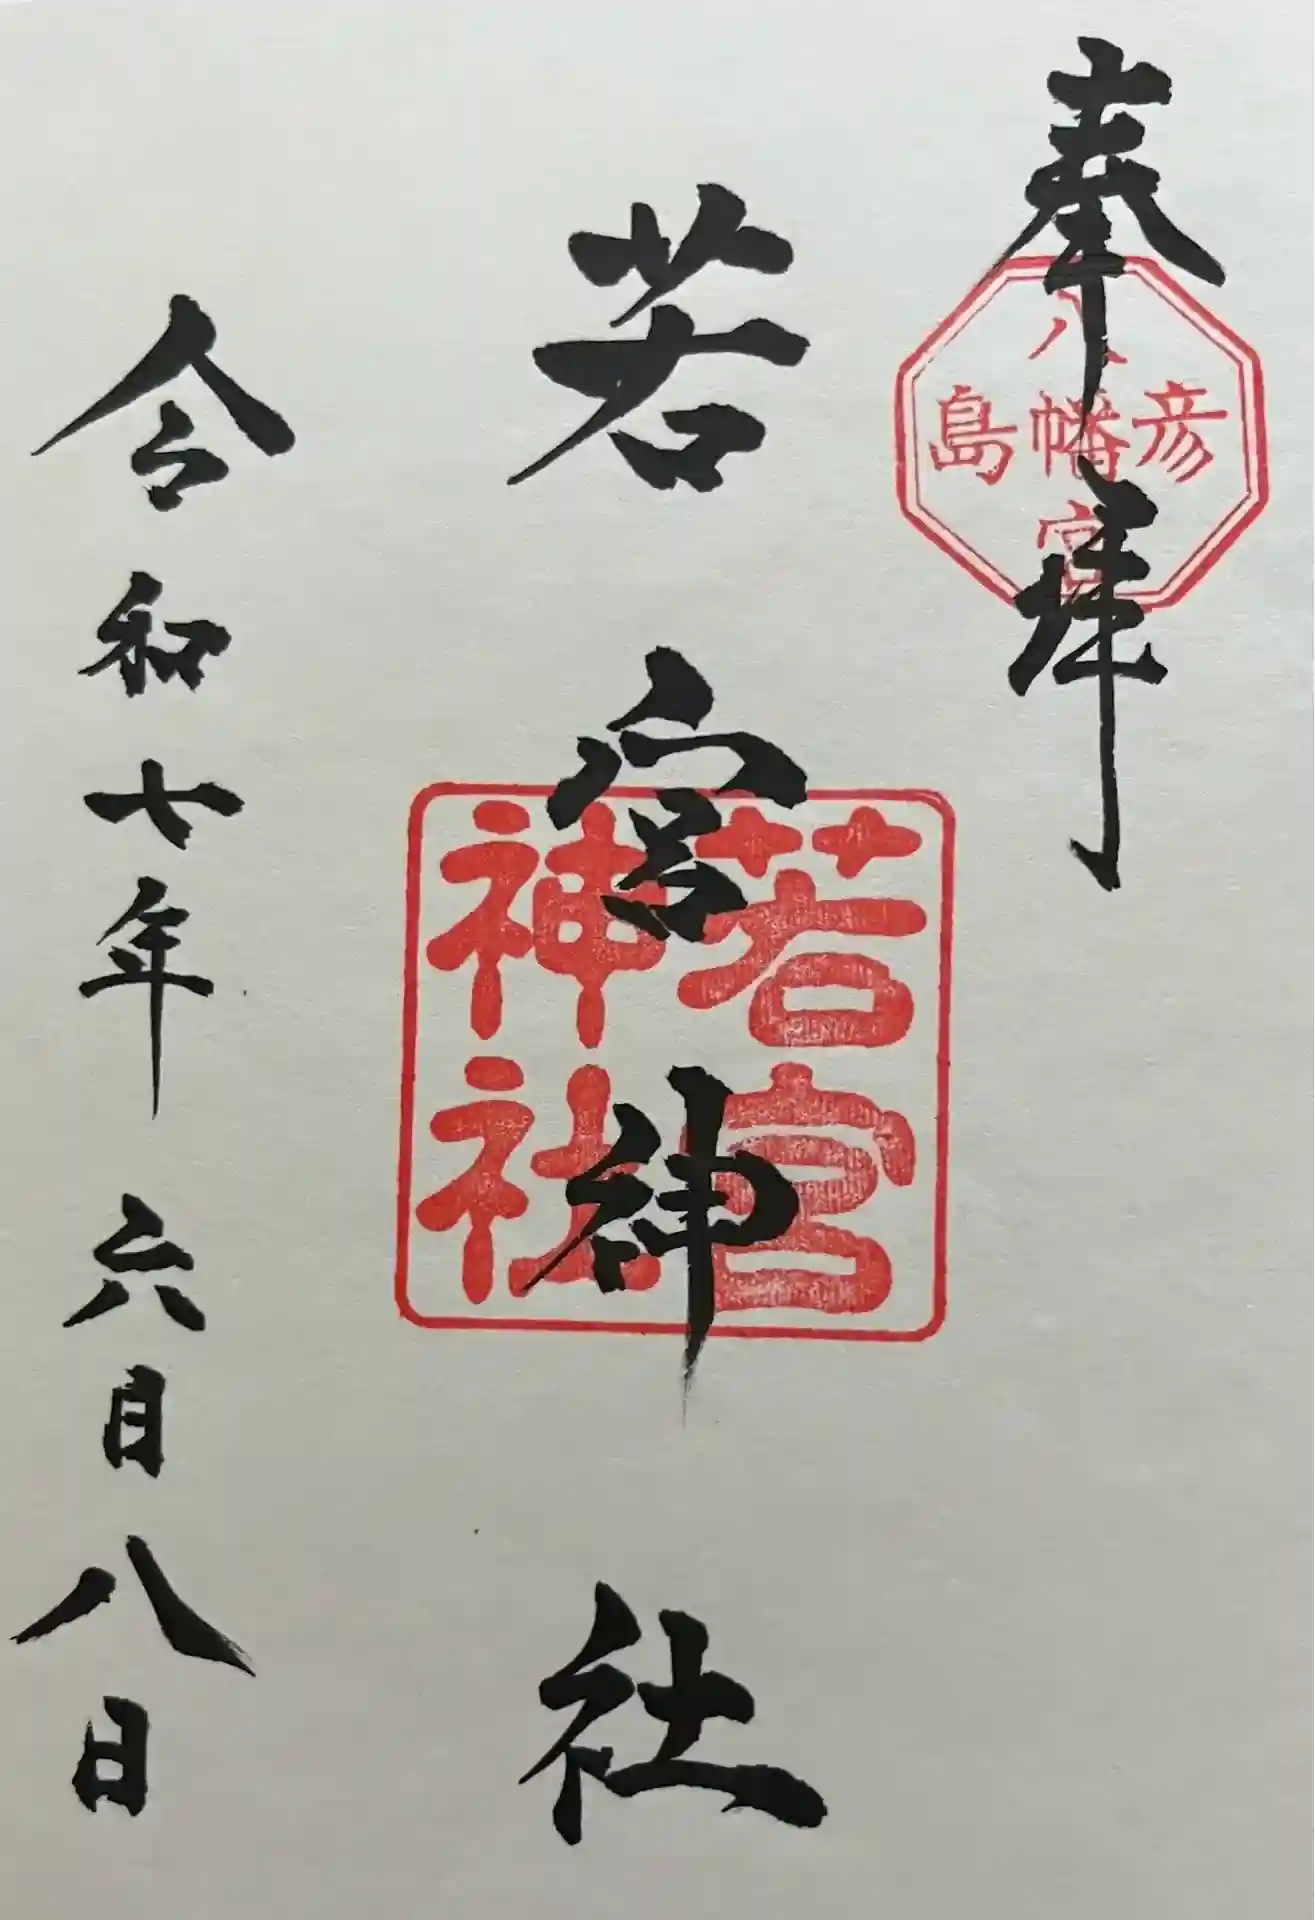 奉拝
彦島
八幡宮
若宮神社
若宮
神社
令和七年六月八日